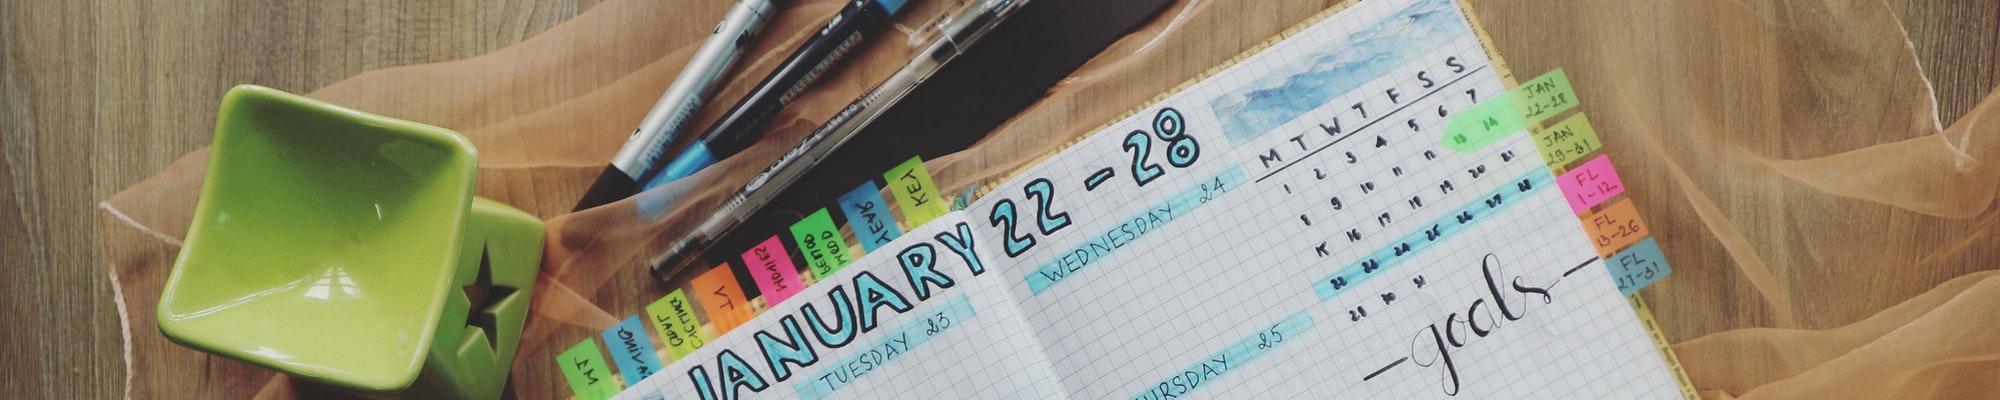 KEY
YEAR
MOOD
MOVIES
TV
JANUARY 22-28
TUESDAY 23
WEDNESDAY 24
THURSDAY 25
M T W T F S S
1 2 3 4 5 6 7
8 9 10 11 12 13 14
15 16 17 18 19 20 21
22 23 24 25 26 27 28
29 30 31
goals
JAN
22-28
JAN
29-31
FL
1-12
FL
13-26
FL
27-31